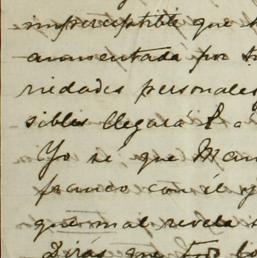 imperceptible que s
aumentada por su
riedades personales
sibles llegará P. a
Yo sé que Man
franco con él y
que mal revela s
Dirás que todo lo